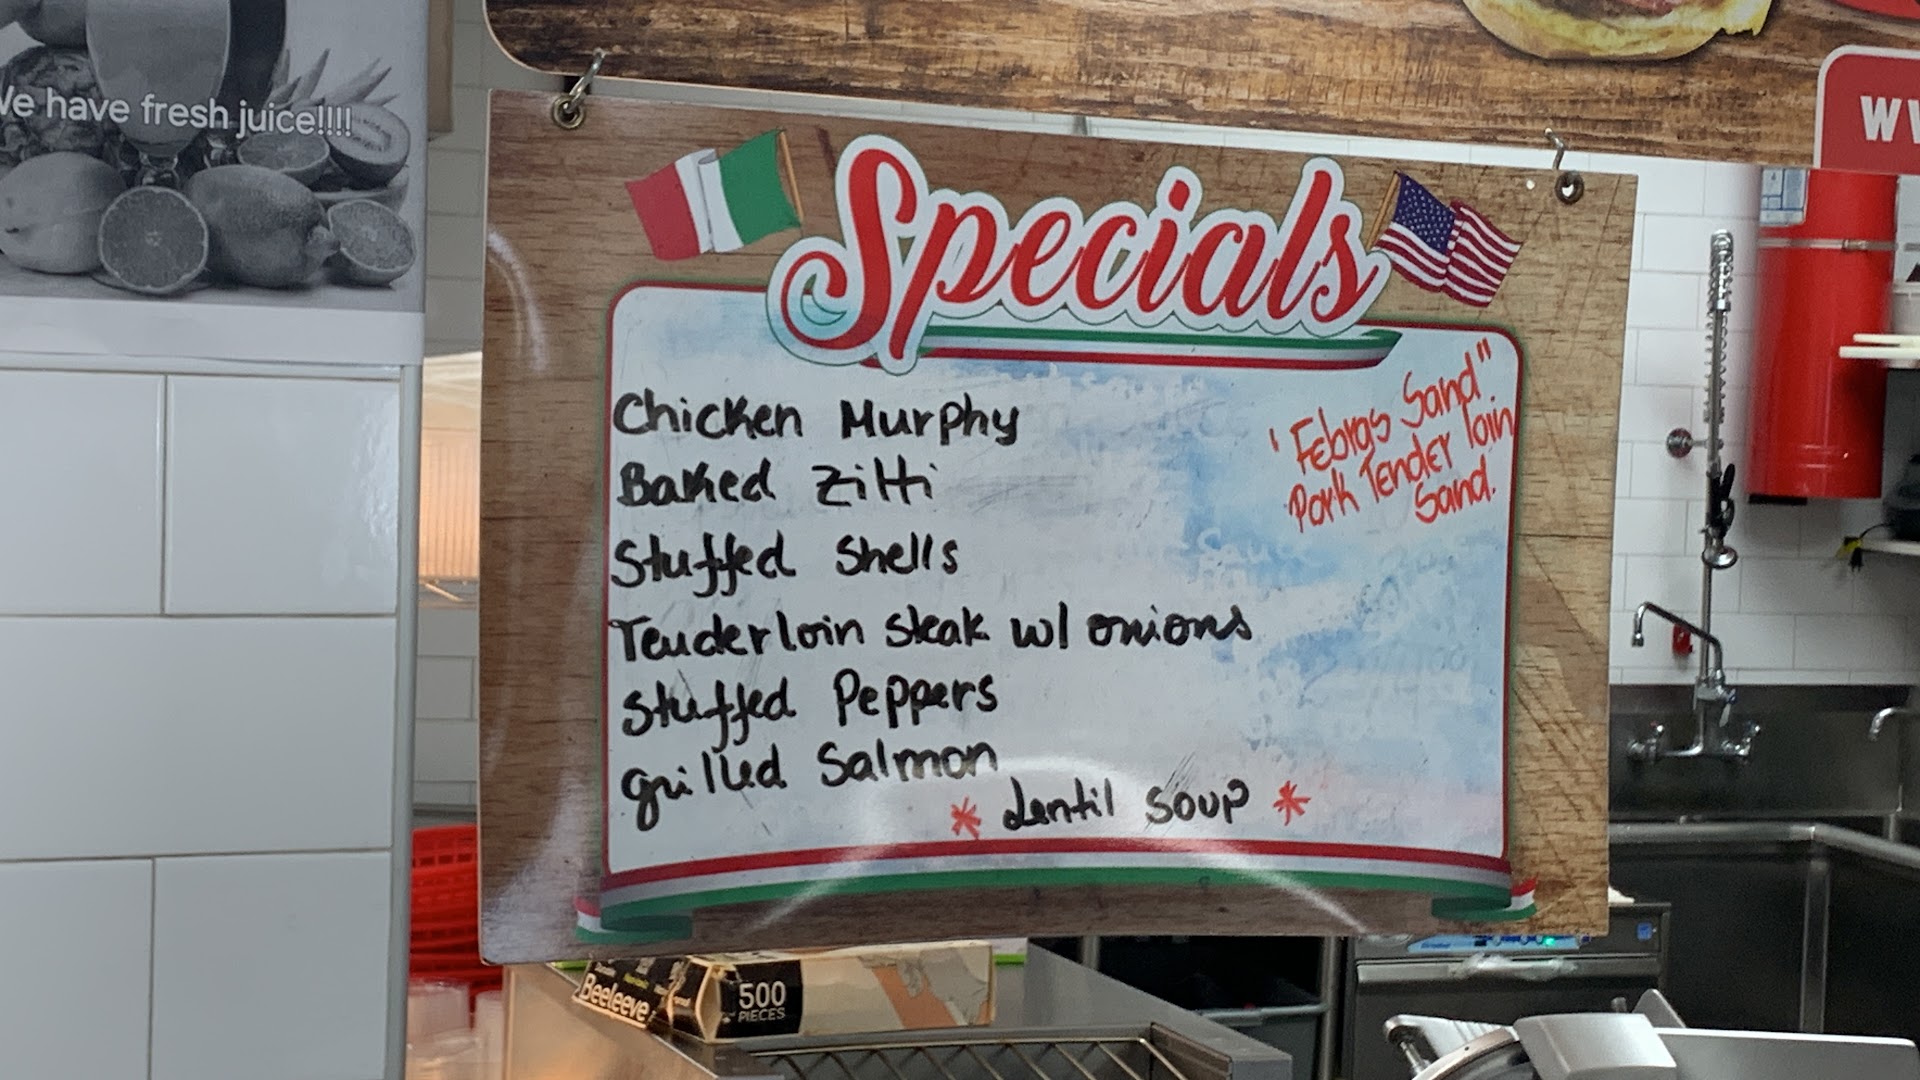 We have fresh juice!!!!
Specials
Chicken Murphy
Baked Zitti
Stuffed Shells
Tenderloin Steak w/ onions
Stuffed Peppers
grilled Salmon
* Lentil Soup *
"Febras Sand"
Pork Tender loin
Sand.
Beeleeve
500
PIECES